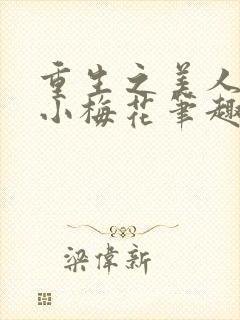 重生之美人
小梅花笔趣
梁偉新